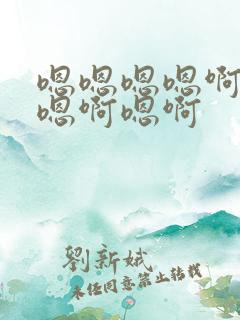 嗯嗯嗯嗯啊
嗯啊嗯啊
劉新娥
未经同意禁止转载